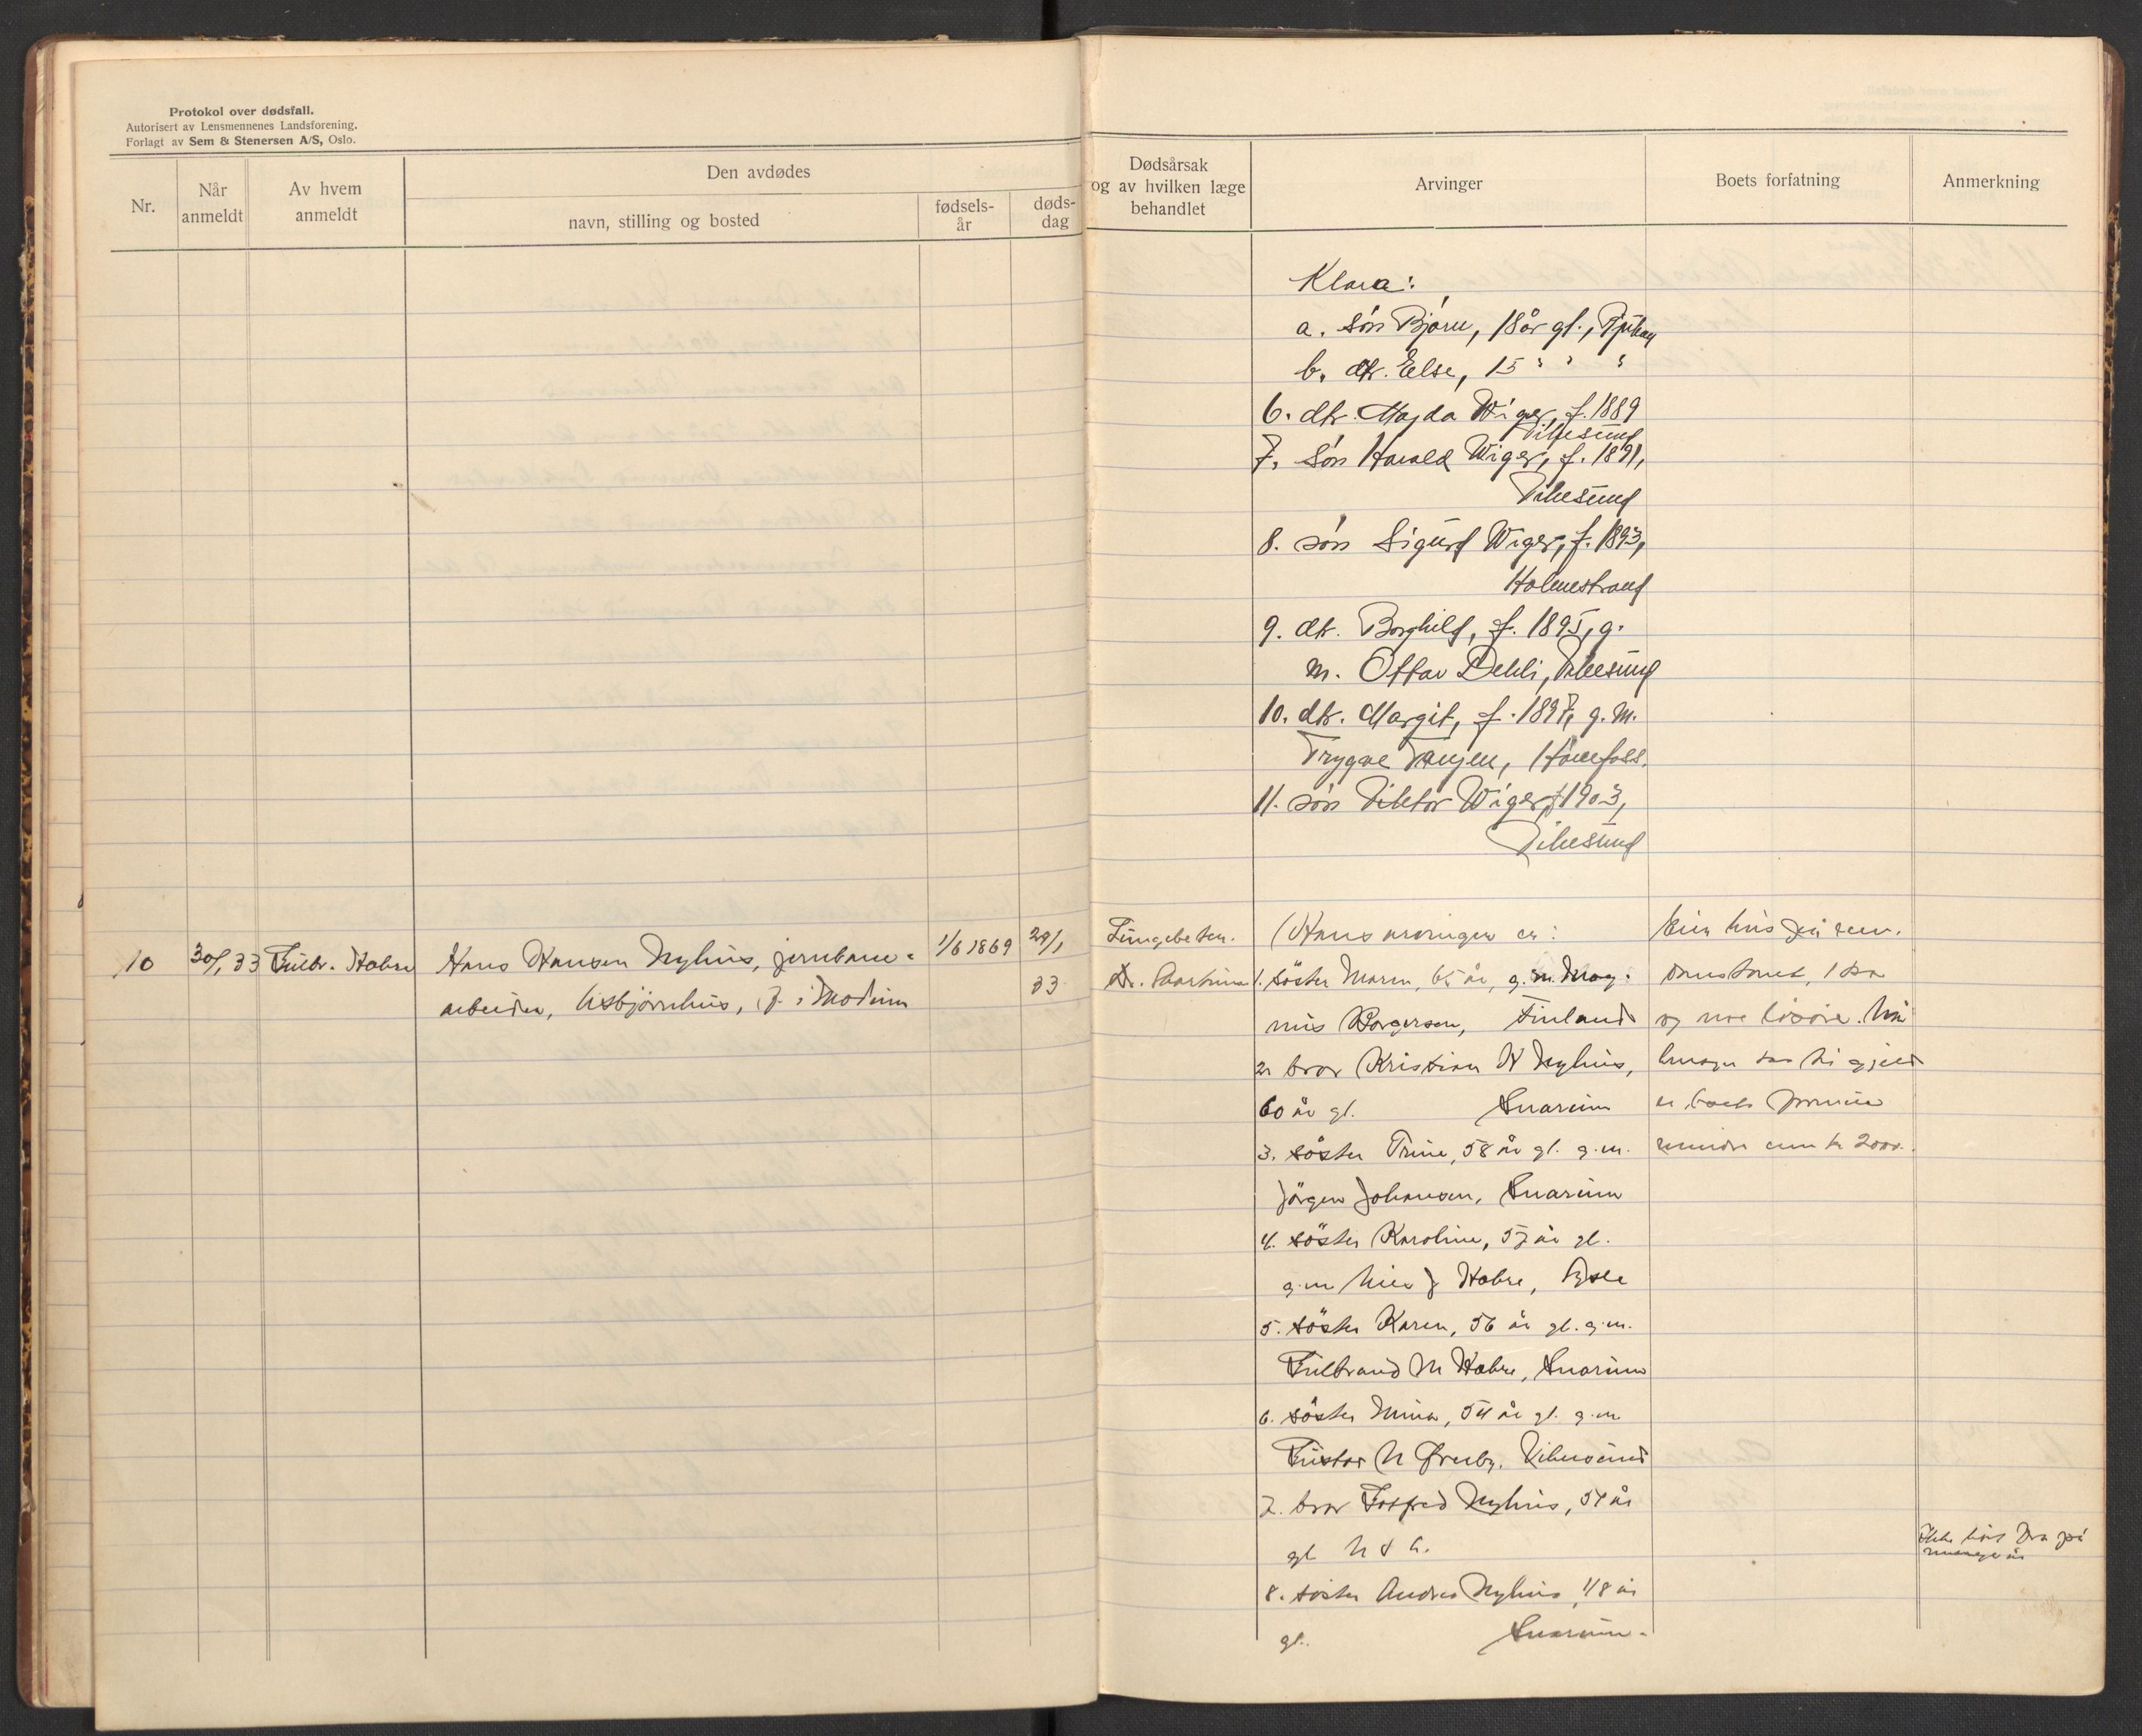 Protokol over dødsfall.
Autorisert av Lensmennenes Landsforening.
Forlagt av Sem & Stenersen A/S, Oslo.
Nr.
Når anmeldt
Av hvem anmeldt
Den avdødes
navn, stilling og bosted
fødsels-år
døds-dag
Dødsårsak og av hvilken læge behandlet
Arvinger
Boets forfatning
Anmerkning
Klara:
a. søn Bjørn, 18 år gl., Rjukan
b. dtr. Else, 15 " " "
6. dtr. Magda Wiger, f. 1889
Vikesund
7. søn Harald Wiger, f. 1891,
Vikesund
8. søn Sigurd Wiger, f. 1893,
Holmestrand
9. dtr. Borghild, f. 1895, g.
m. Ottar Dehli, Vikesund
10. dtr. Margit, f. 1897, g. m.
Trygve Tangen, Hönefoss.
11. søn Viktor Wiger, f 1903,
Vikesund
10
30/1 33
Gulbr. Habre
Hans Hansen Nyhus, jernbane-
arbeider, Asbjørnhus, f. i Modum
1/6 1869
29/1
33
Lungebeten.
Dr.
Hans arvinger er:
1. söster Maren, 65 år, g. m. Mag-
nus Borgersen, Finland
2. bror Kristian H Nyhus,
60 år gl. Snarum
3. söster Trine, 58 år gl. g.m.
Jörgen Johansen, Snarum
4. söster Karoline, 57 år gl.
g.m. Nils J Habre, Sysle
5. söster Karen, 56 år gl. g.m.
Gulbrand M Habre, Snarum
6. söster Mina, 54 år gl. g.m.
Gustav N Øreby, Vikesund
7. bror Gotfred Nyhus, 51 år
gl. U S A.
8. söster Andrea Nyhus, 48 år
gl. Snarum.
Ein hus på
og noe lösöre. Når
gjeld
er boets formue
mindre enn kr 2000.
Ikke hørt fra på
mange år